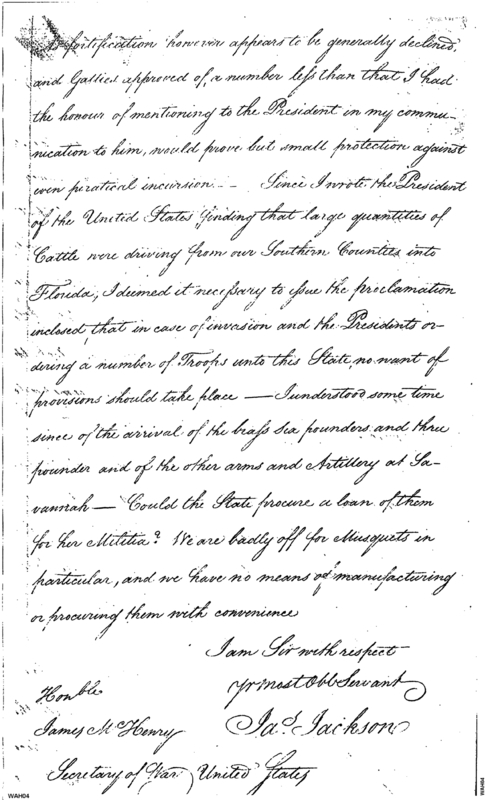 fortification however appears to be generally declined,
and Gallies approved of, a number less than that I had
the honour of mentioning to the President in my commu-
nication to him, would prove but small protection against
even piratical incursion -- Since I wrote the President
of the United States finding that large quantities of
Cattle were driving from our Southern Counties into
Florida, I deemed it necessary to issue the proclamation
inclosed, that in case of invasion and the Presidents or-
dering a number of Troops unto this State, no want of
provisions should take place — I understood some time
since of the arrival of the brass Sea pounders and three
pounder and of the other arms and Artillery at Sa-
vannah — Could the State procure a loan of them
for her Militia? We are badly off for Musquets in
particular, and we have no means of manufacturing
or procuring them with convenience
I am Sir with respect
Yr most Obt Servant
Jas Jackson
Honble
James McHenry
Secretary of War United States
WAH04
WAH04